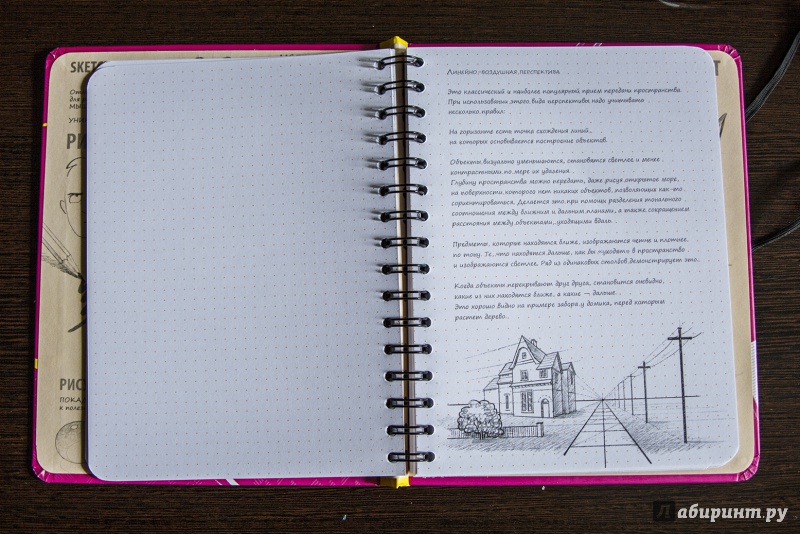 SKET
От
для
Мы
УНИ
РИ
РИС
ПОКА
к поле
Линейно-воздушная перспектива
Это классический и наиболее популярный прием передачи пространства.
При использовании этого вида перспективы надо учитывать
несколько правил:
На горизонте есть точка схождения линий,
на которых основывается построение объектов.
Объекты визуально уменьшаются, становятся светлее и менее
контрастными по мере их удаления.
Глубину пространства можно передать, даже рисуя открытое море,
на поверхности которого нет никаких объектов, позволяющих как-то
сориентироваться. Делается это при помощи разделения тонального
соотношения между ближним и дальним планами, а также сокращением
расстояния между объектами, уходящими вдаль.
Предметы, которые находятся ближе, изображаются четче и плотнее
по тону. Те, что находятся дальше, как бы «уходят» в пространство
и изображаются светлее. Ряд из одинаковых столбов демонстрирует это.
Когда объекты перекрывают друг друга, становится очевидно,
какие из них находятся ближе, а какие — дальше.
Это хорошо видно на примере забора у домика, перед которым
растет дерево.
Лабиринт.ру